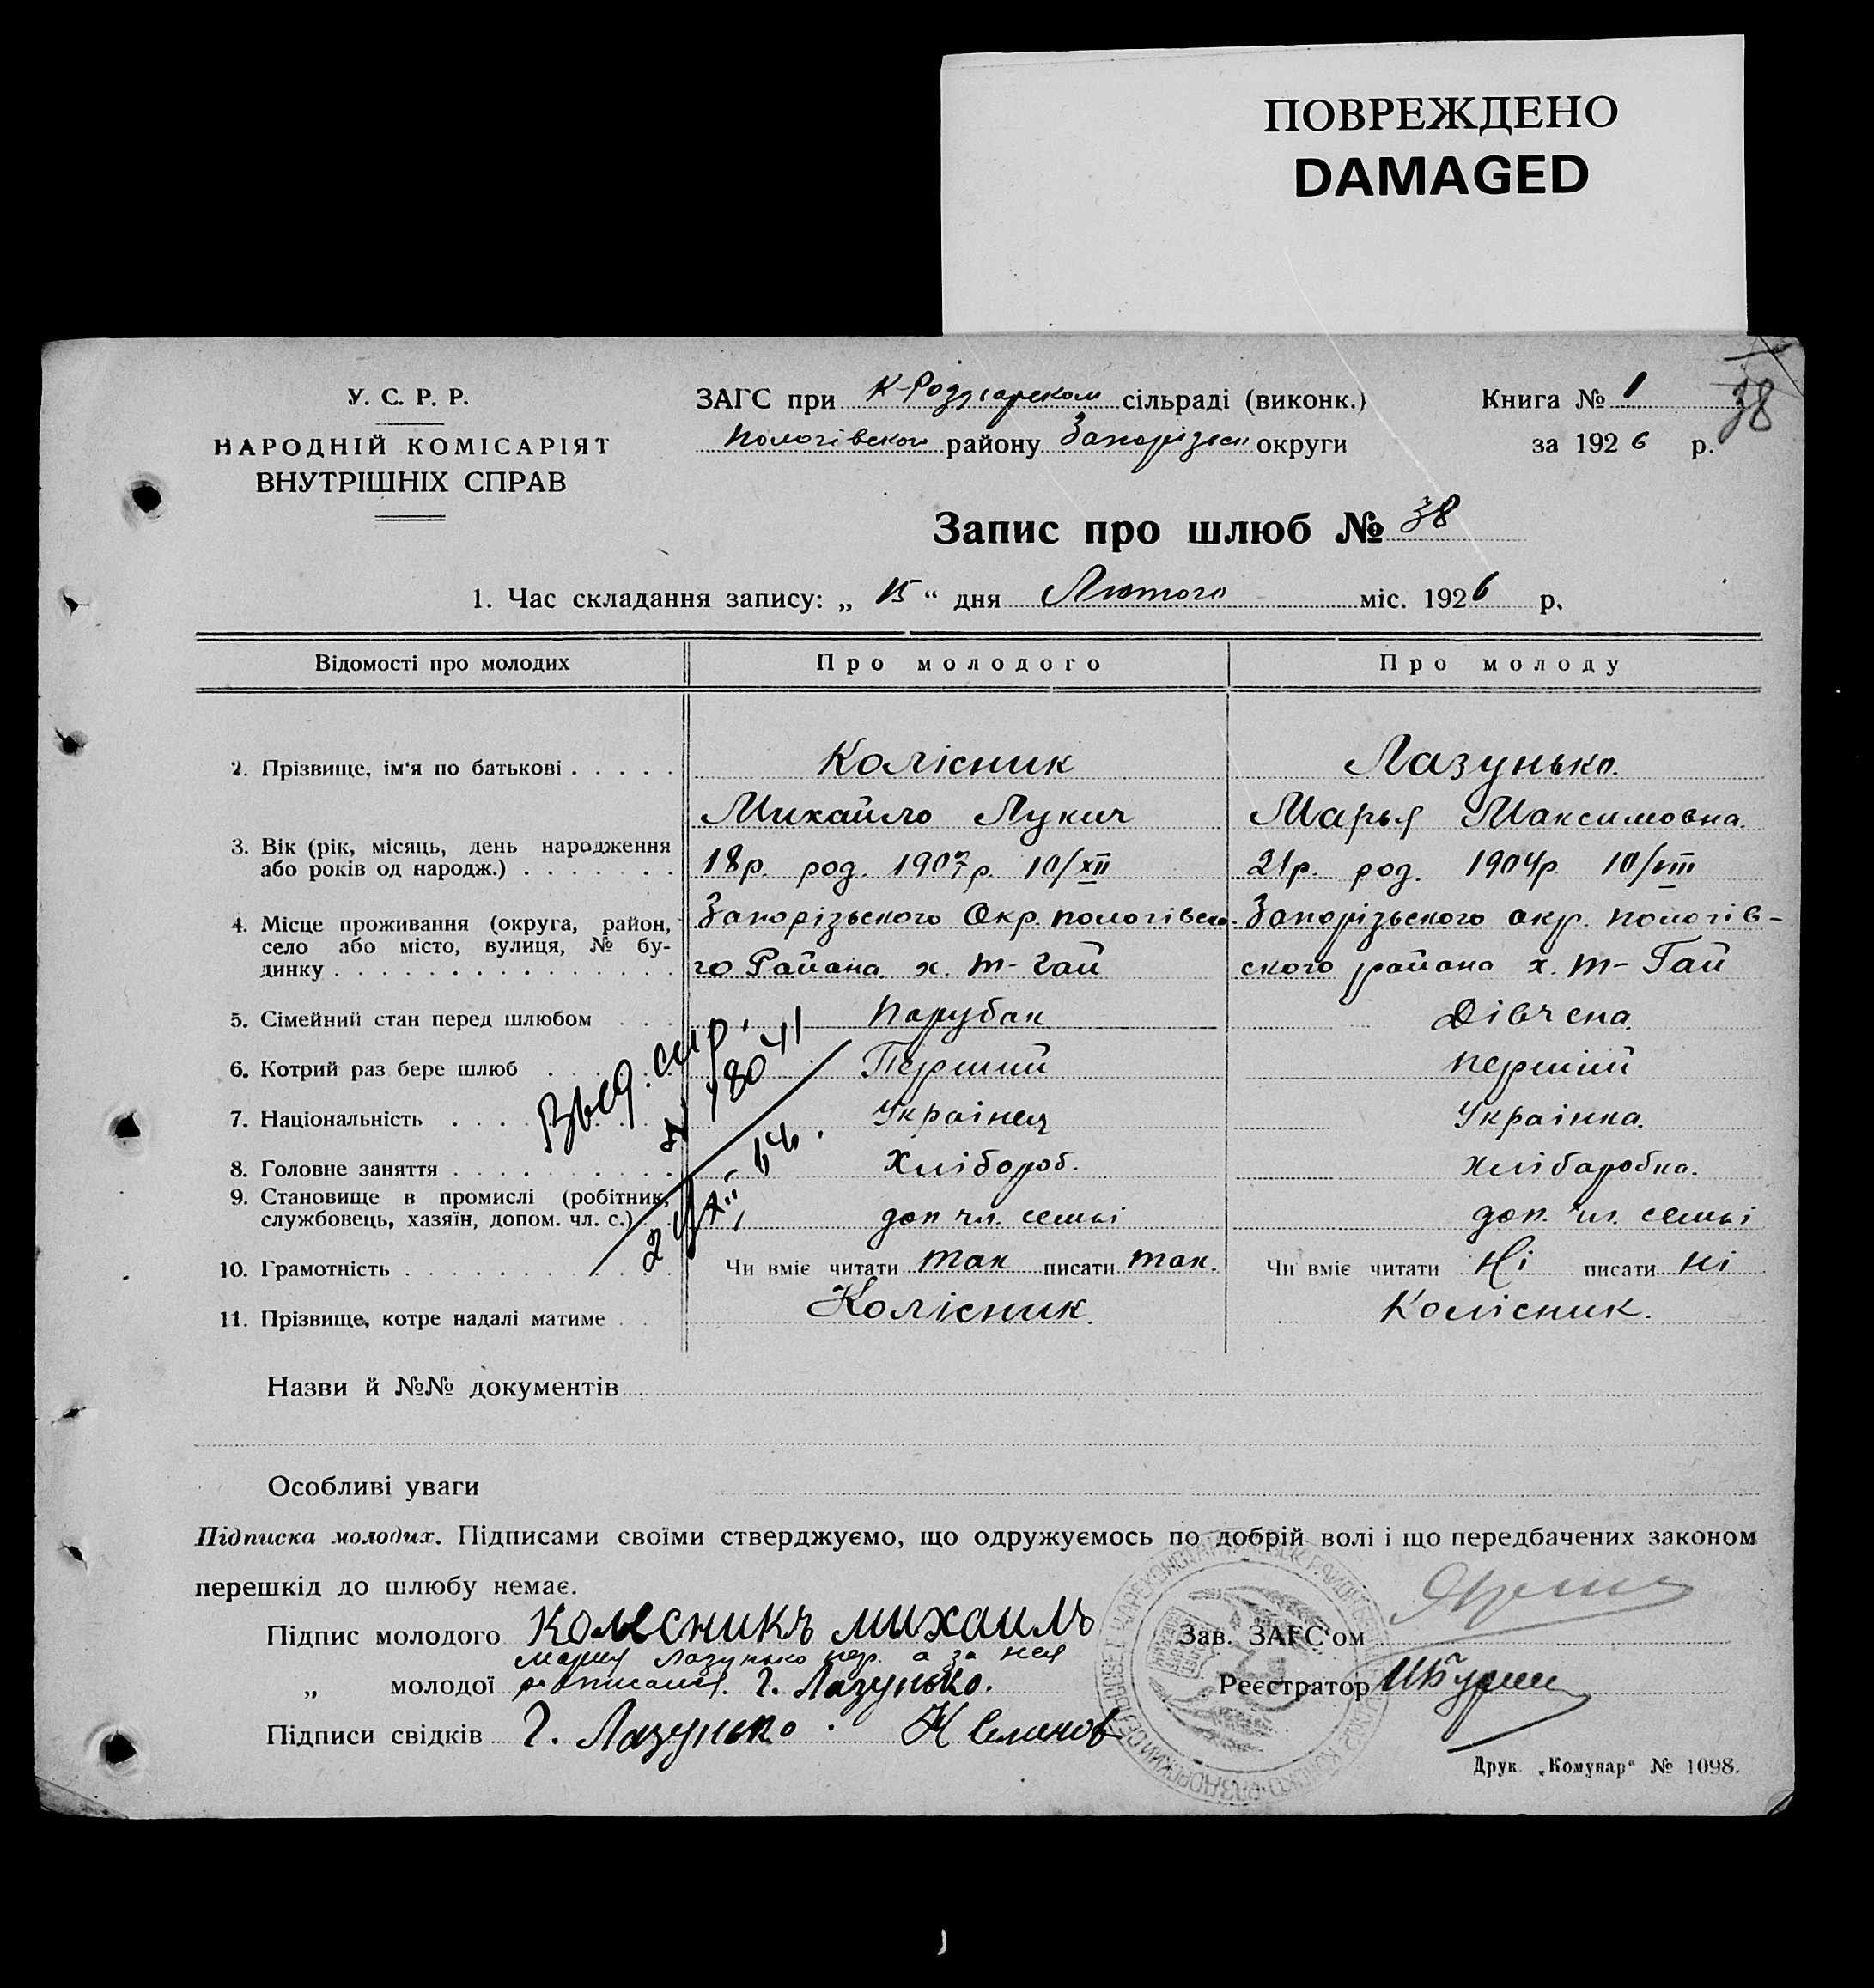 ПОВРЕЖДЕНО
DAMAGED
У. С. Р. Р.
НАРОДНІЙ КОМІСАРІЯТ
ВНУТРІШНІХ СПРАВ
ЗАГС при К-Роздорском сільраді (виконк.)
Пологівского району Запорізьк округи
Книга № 1
за 1926 р.
38
Запис про шлюб № 38
1. Час складання запису: „ 15 “ дня Лютого міс. 1926 р.
Відомості про молодих Про молодого Про молоду
2. Прізвище, ім'я по батькові Колісник Лазунько.
Михайло Лукич Марья Максимовна.
3. Вік (рік, місяць, день народження
або років од народж.) 18р. род. 1907р. 10/XII 21р. род. 1904р 10/VIII
4. Місце проживання (округа, район,
село або місто, вулиця, № бу-
динку
Запорізьского Окр. пологівско-
го Района х. Т-Гай
Запорізьского окр. пологів-
ского района х. Т-Гай
5. Сімейний стан перед шлюбом Парубак Дівчена.
6. Котрий раз бере шлюб Перший перший
7. Національність Українец Українка.
8. Головне заняття Хлібороб. хлібаробка.
9. Становище в промислі (робітник,
службовець, хазяїн, допом. чл. с.) доп чл. семьі доп. чл. семьі
10. Грамотність Чи вміє читати так писати так. Чи вміє читати Ні писати ні
11. Прізвище, котре надалі матиме Колісник. Колісник.
Выд. спр.
Назви й №№ документів
Особливі уваги
Підписка молодих. Підписами своїми стверджуємо, що одружуємось по добрій волі і що передбачених законом
перешкід до шлюбу немає.
Підпис молодого Колесникъ михаилъ
Зав. ЗАГС'ом
Мария Лазунько нер. а за нея
„ молодої росписался. Г. Лазунько.
Реєстратор
Підписи свідків Г. Лазунько.
Друк. „Комунар“ № 1098.